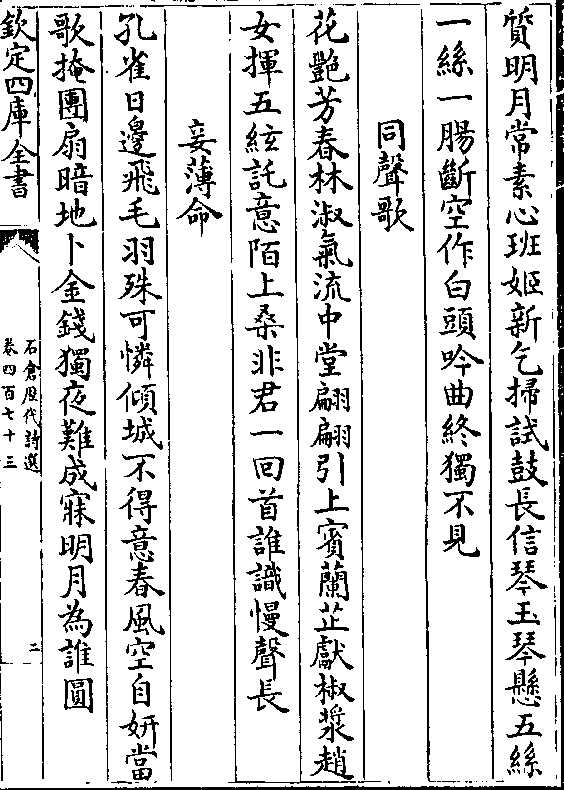 質明月常素心班姬新乞掃試鼓長信琴玉琴懸五絲
一絲一腸斷空作白頭吟曲終獨不見
同聲歌
花艷芳春林淑氣流中堂翩翩引上賓蘭芷獻椒漿趙
女揮五絃託意陌上桑非君一回首誰識慢聲長
妾薄命
孔雀日邊飛毛羽殊可憐傾城不得意春風空自妍當
歌掩團扇暗地卜金錢獨夜難成寐明月為誰圓
欽定四庫全書
石倉歷代詩選
卷四百七十三
二